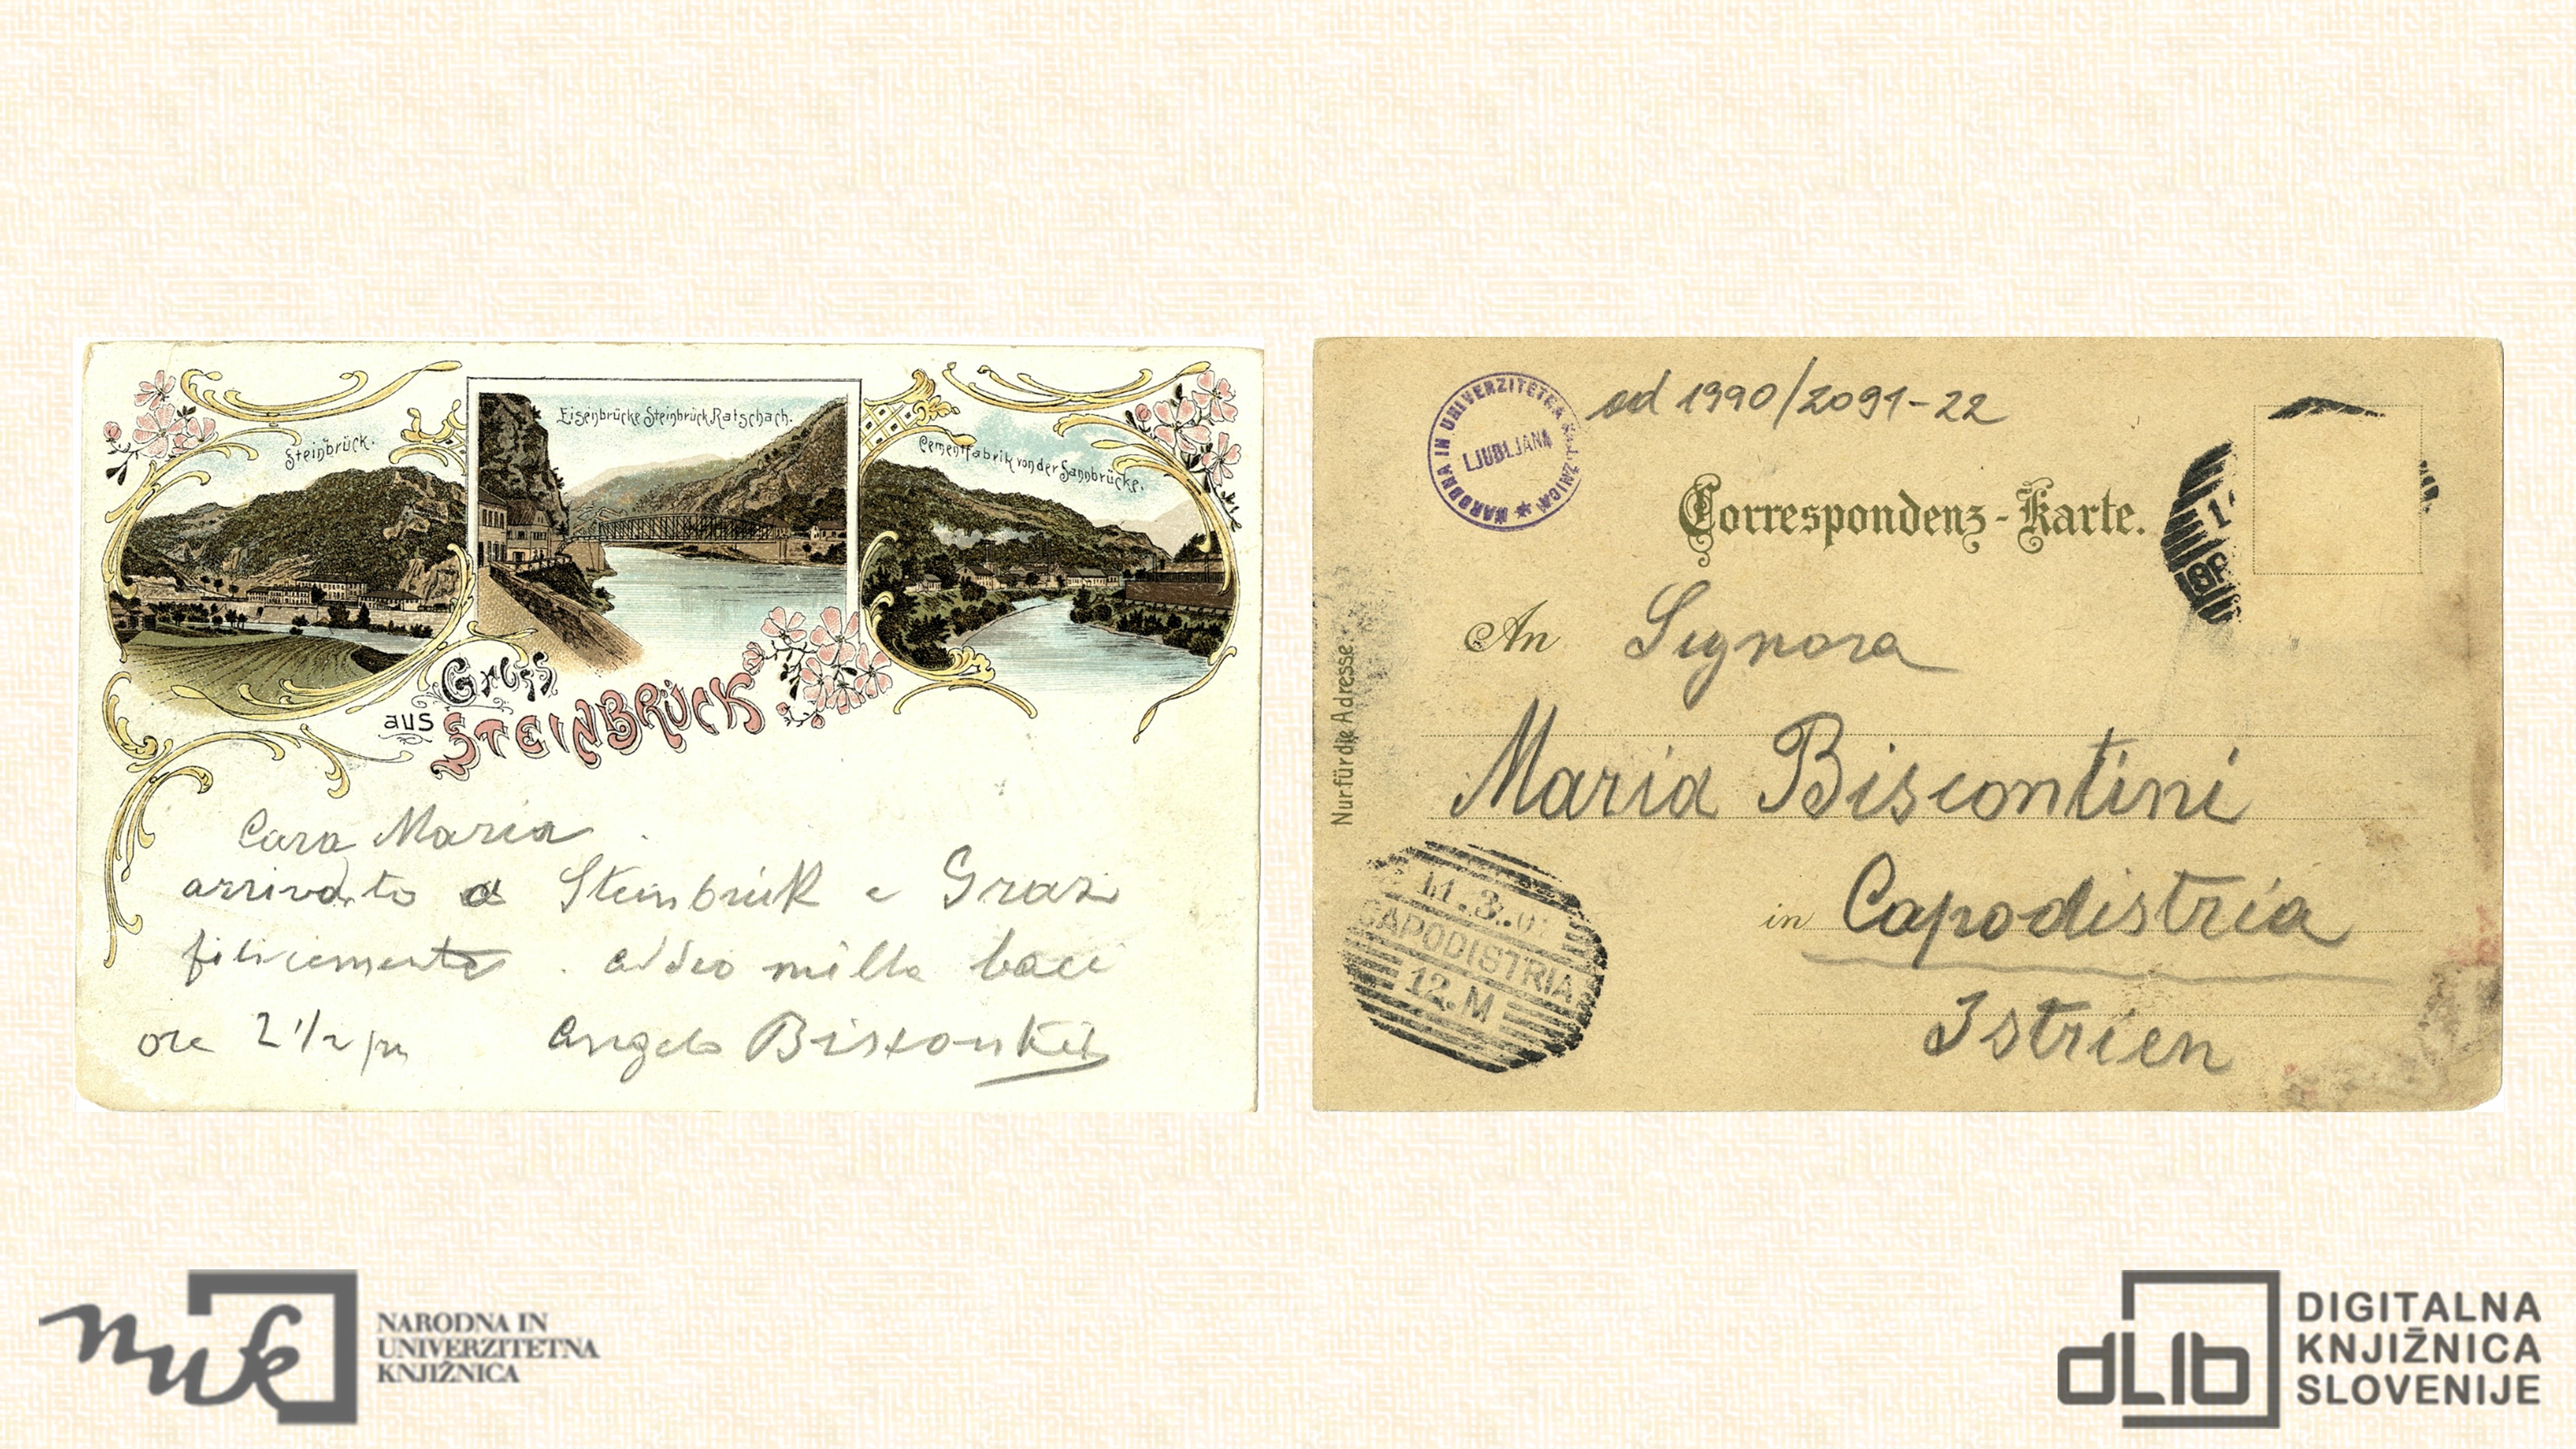 Steinbrück.
Eisenbrücke Steinbrück Ratschach.
Cementfabrik von der Sannbrücke.
Gruss
aus STEINBRÜCK
Cara Maria
arrivato a Steinbrük e Graz
felicemente . addio mille baci
ore 2 1/2 pm Angelo Biscontini
NARODNA IN UNIVERZITETNA KNJIŽNICA
LJUBLJANA
od 1990/2091-22
Correspondenz-Karte.
An Signora
Maria Biscontini
in Capodistria
Istrien
Nur für die Adresse.
11.3.0
CAPODISTRIA
12.M
nuk
NARODNA IN
UNIVERZITETNA
KNJIŽNICA
dLib
DIGITALNA
KNJIŽNICA
SLOVENIJE